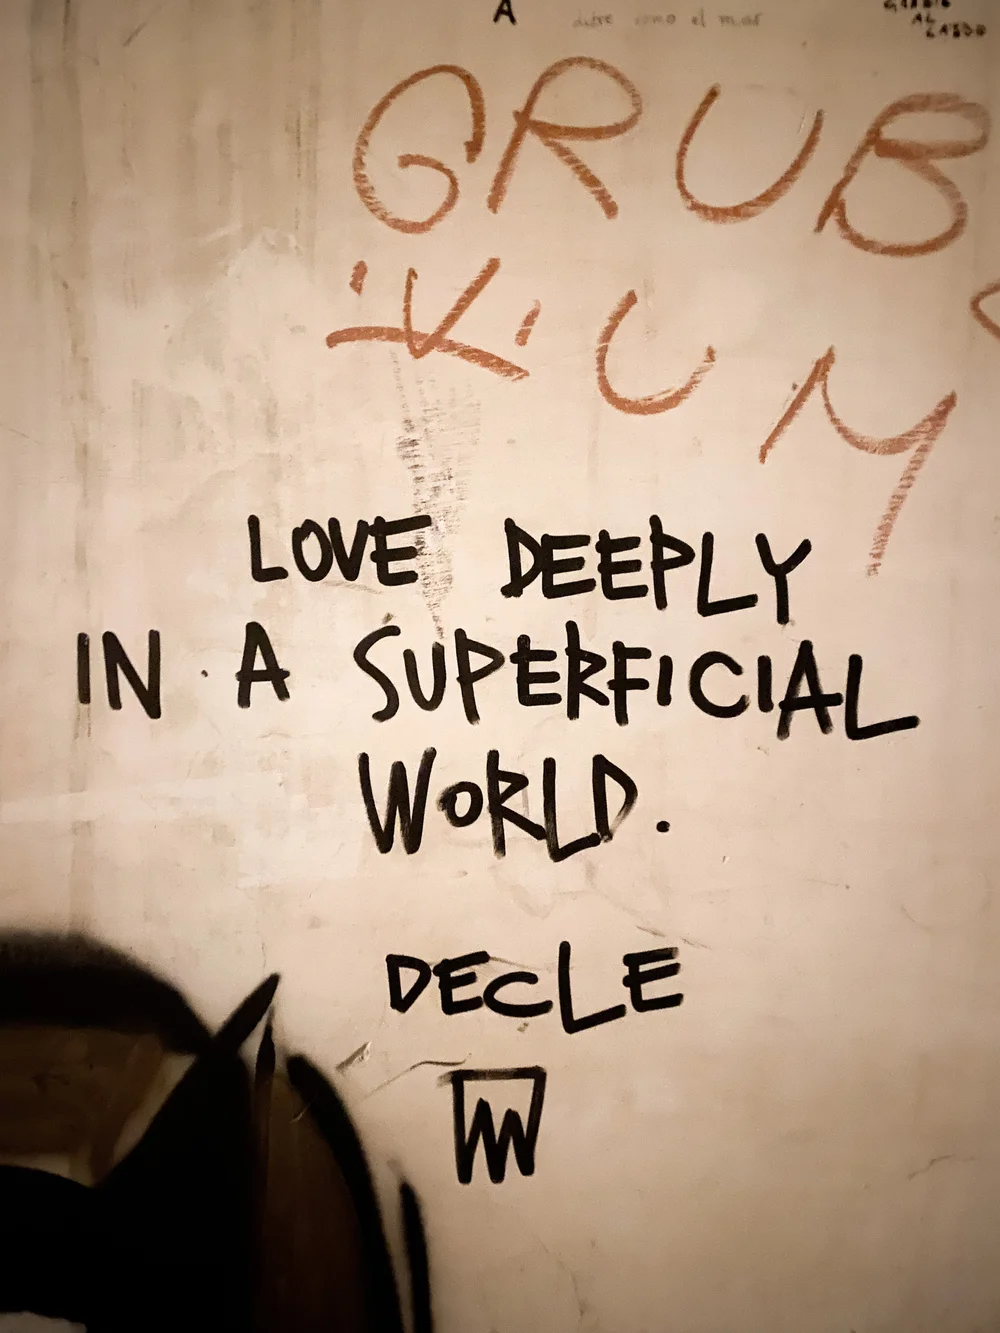 A
como el mar
GRUB
KUM
LOVE DEEPLY
IN A SUPERFICIAL
WORLD.
DECLE